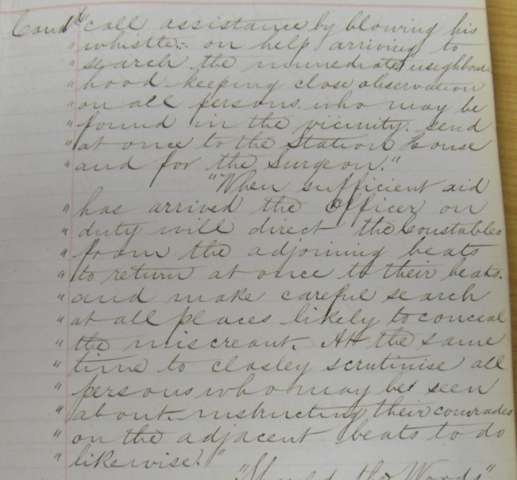 Contd call assistance by blowing his
" whistle: on help arriving to
" search the immediate neighbour
" hood keeping close observation
" on all persons who may be
" found in the vicinity: send
" at once to the Station House
" and for the Surgeon."
"When sufficient aid
" has arrived the Officer on
" duty will direct the Constables
" from the adjoining beats
" to return at once to their beats.
" and make careful search
" at all places likely to conceal
" the miscreant. At the same
" time to closley scrutinise all
" persons who may be seen
" about. instructing their comrades
" on the adjacent beats to do
" likewise."